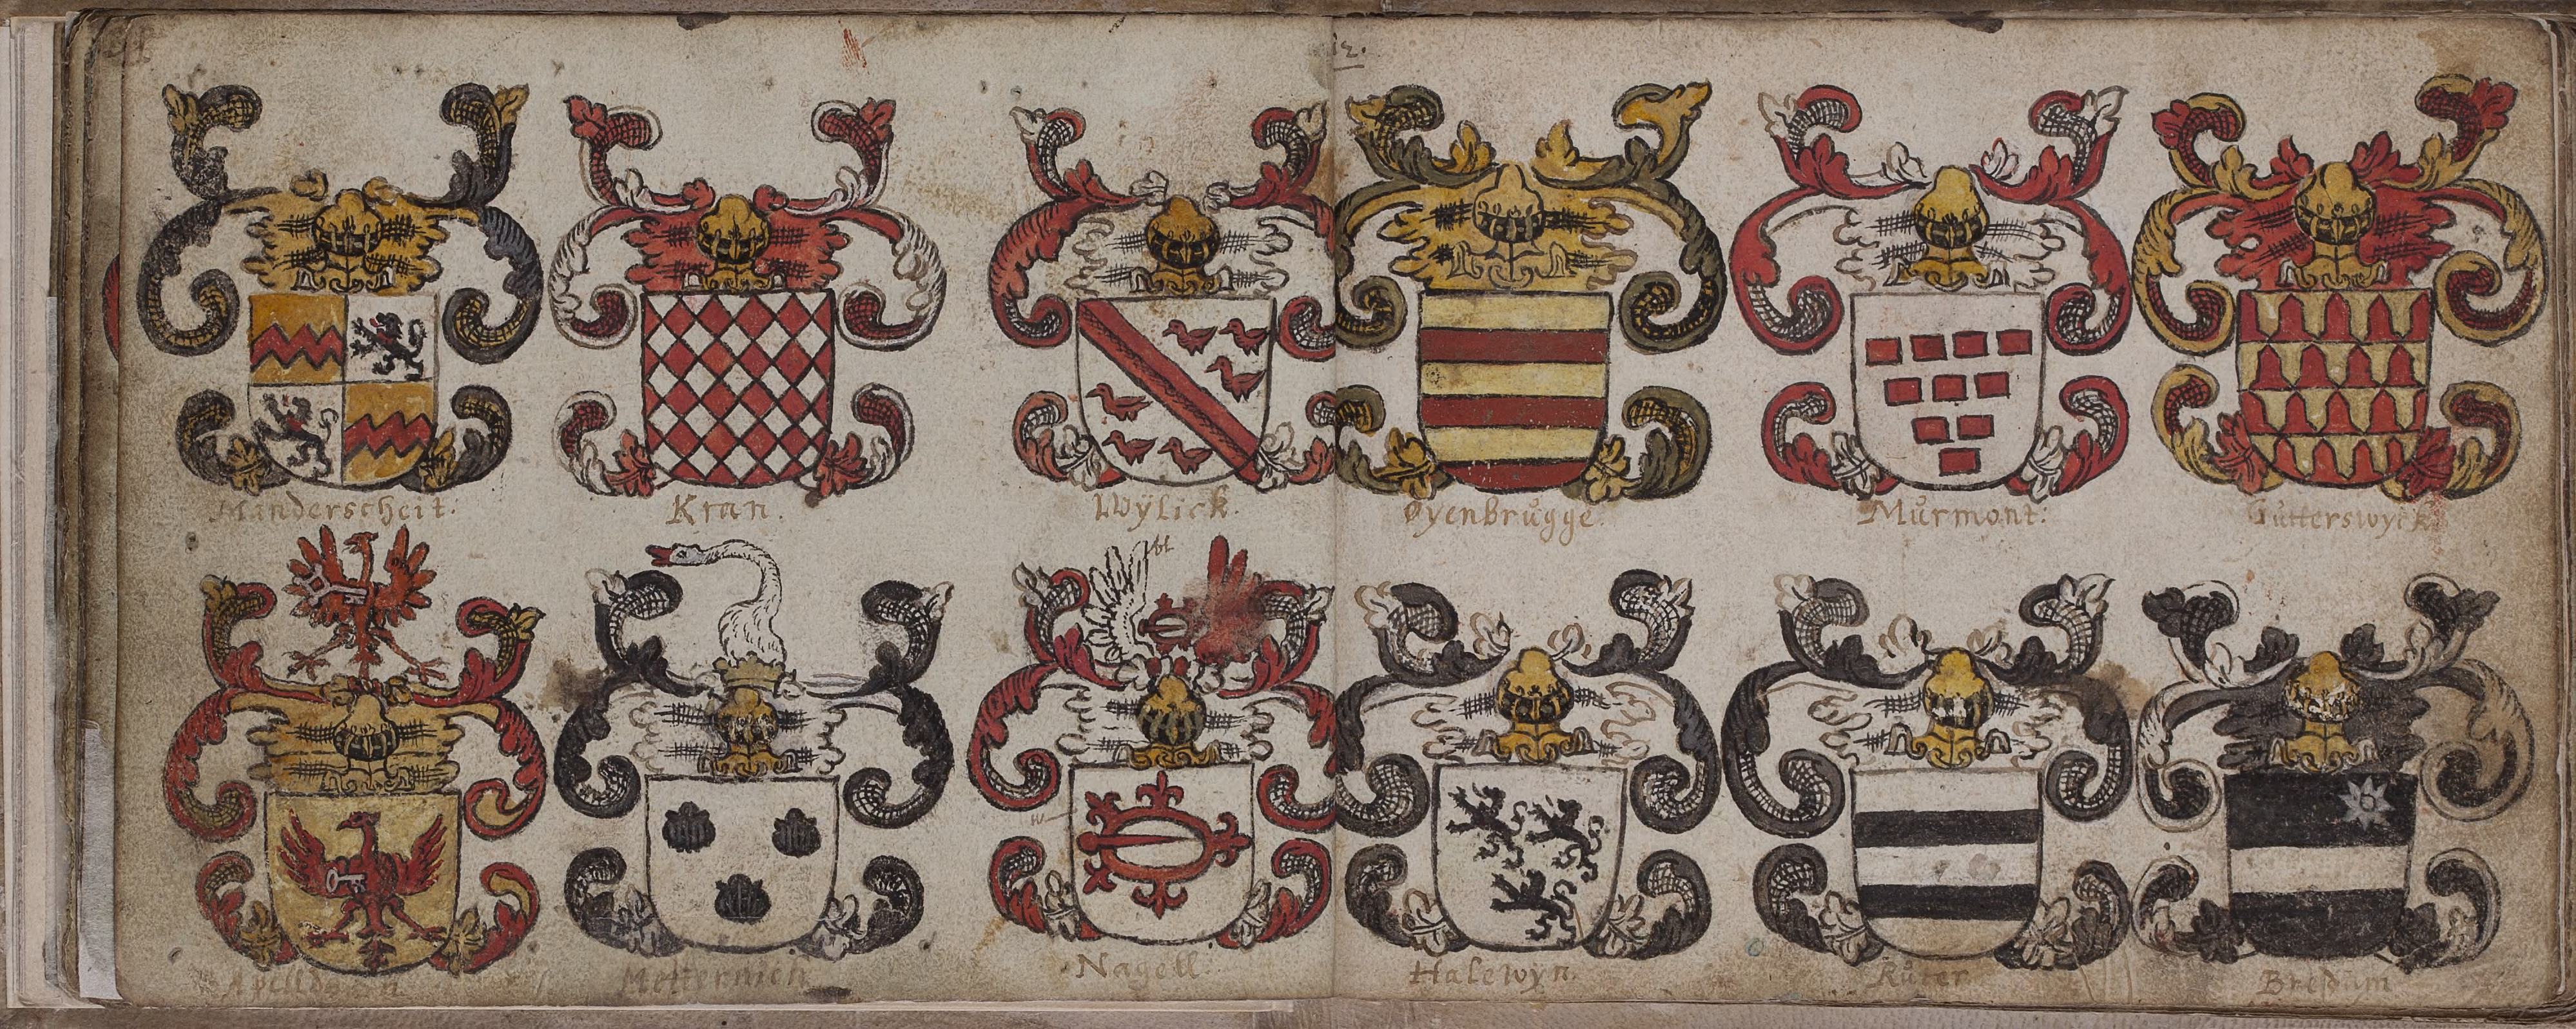 12.
Manderscheit.
Kran.
Wÿlick.
Øyenbrugge.
Mŭrmont:
Gŭtterswyck
bl
w
Apelldoorn
Metternich
Nagell.
Halewyn.
Rŭter